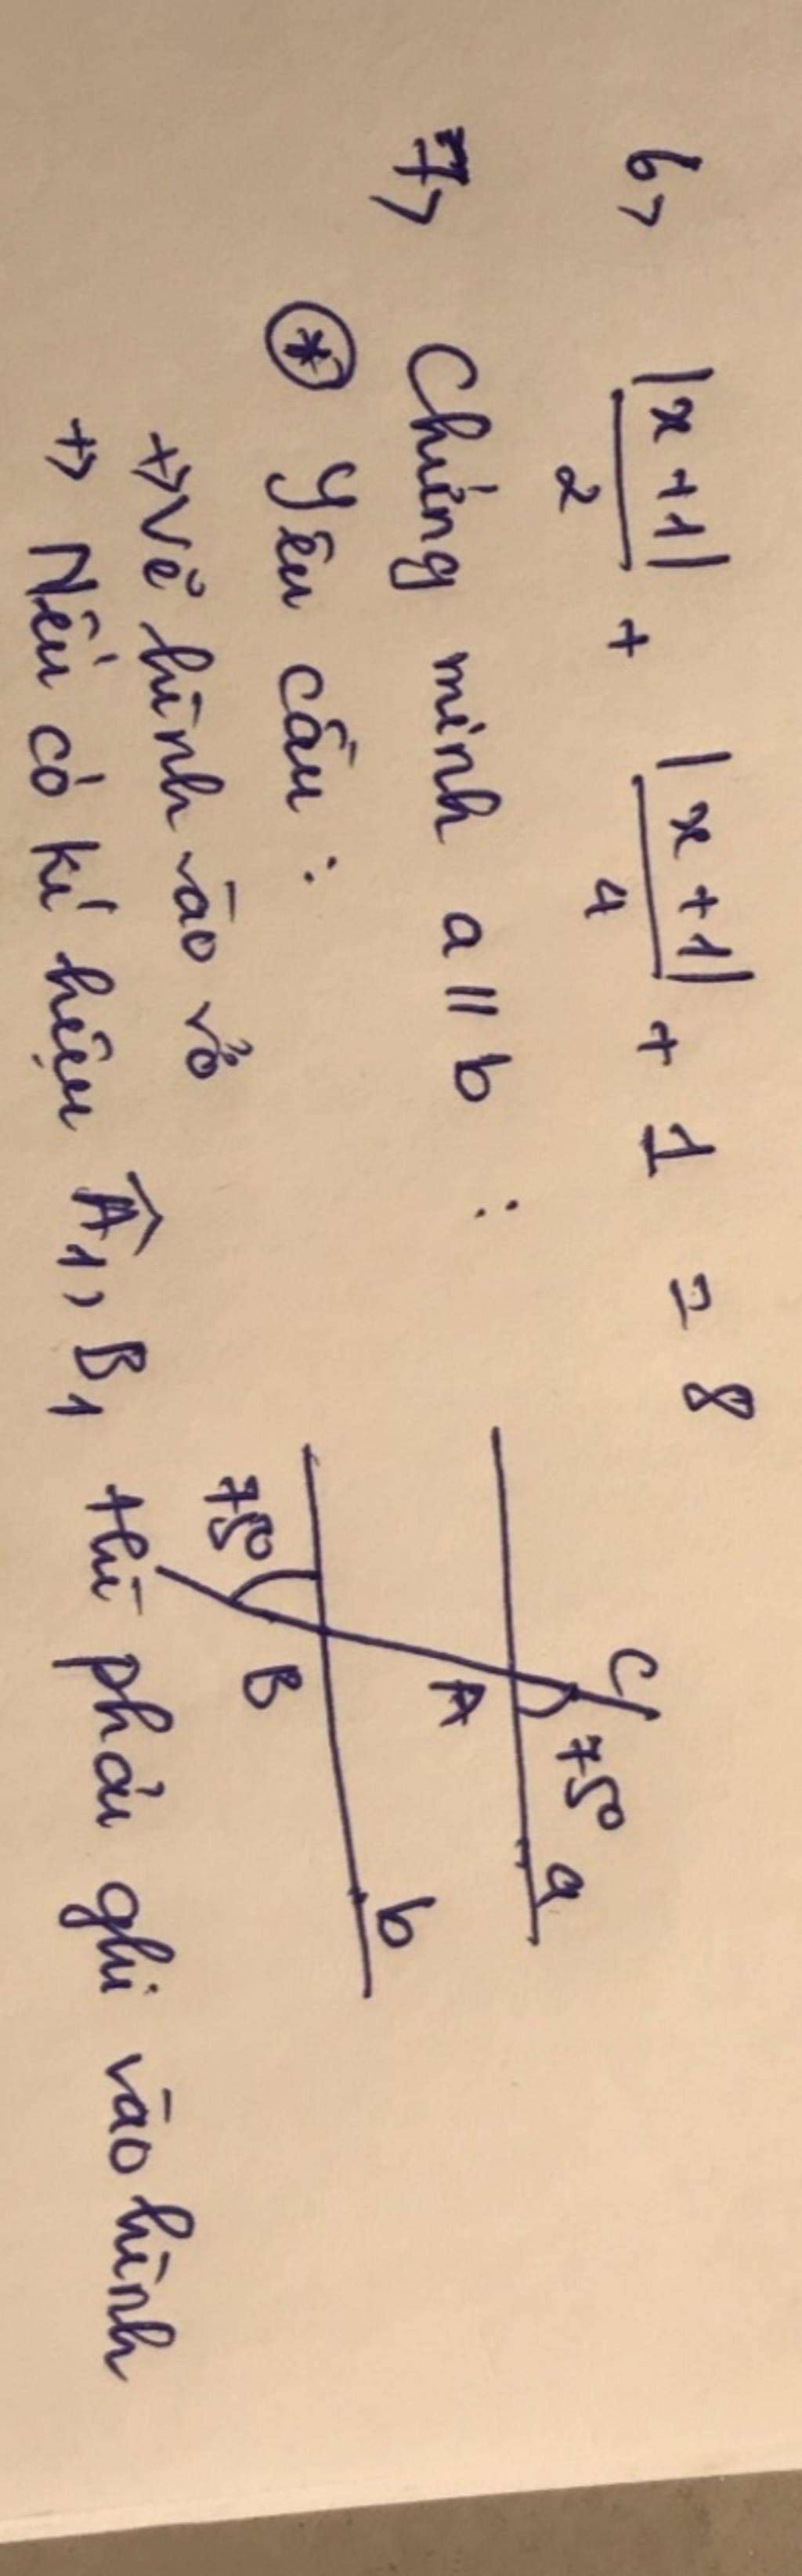 6> |x+1|/2 + |x+1|/4 + 1 = 8
7> Chứng minh a // b :
c
75°
a
A
b
B
75°
* Yêu cầu :
+> Vẽ hình vào vở
+> Nếu có kí hiệu Â1, B1 thì phải ghi vào hình